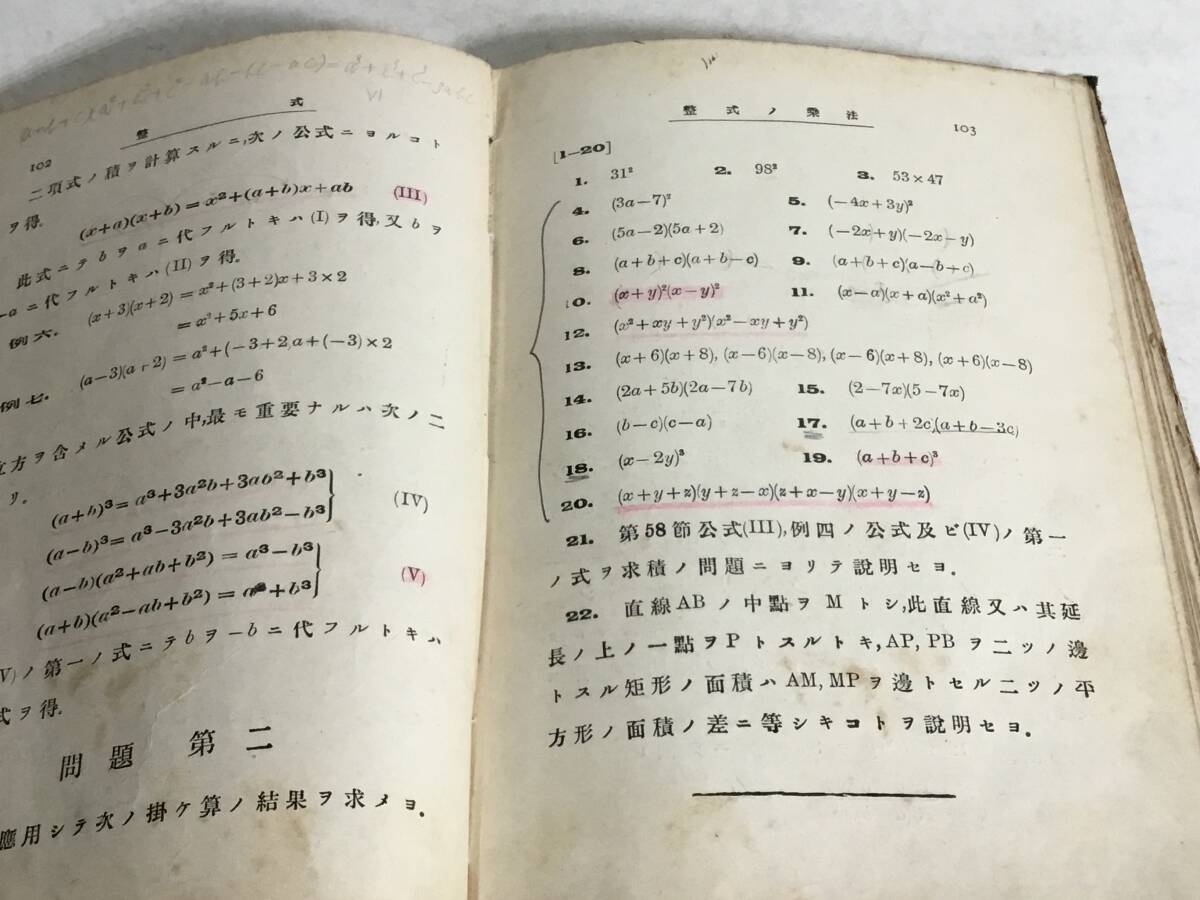 整 式
102
二項式ノ積ヲ計算スルニ,次ノ公式ニヨルコト
ヲ得.
(x+a)(x+b)=x²+(a+b)x+ab (III)
此式ニテbヲaニ代フルトキハ(I)ヲ得,又bヲ
-aニ代フルトキハ(II)ヲ得.
例六. (x+3)(x+2)=x²+(3+2)x+3×2
=x²+5x+6
例七. (a-3)(a+2)=a²+(-3+2)a+(-3)×2
=a²-a-6
立方ヲ含メル公式ノ中,最モ重要ナルハ次ノ二
リ.
(a+b)³=a³+3a²b+3ab²+b³
(a-b)³=a³-3a²b+3ab²-b³ (IV)
(a-b)(a²+ab+b²)=a³-b³
(a+b)(a²-ab+b²)=a³+b³ (V)
V)ノ第一ノ式ニテbヲ-bニ代フルトキハ
式ヲ得.
問題 第二
應用シテ次ノ掛ケ算ノ結果ヲ求メヨ.
整式ノ乗法
103
[1-20]
1. 31² 2. 98² 3. 53×47
4. (3a-7)² 5. (-4x+3y)²
6. (5a-2)(5a+2) 7. (-2x+y)(-2x-y)
8. (a+b+c)(a+b-c) 9. (a+b+c)(a-b+c)
10. (x+y)²(x-y)² 11. (x-a)(x+a)(x²+a²)
12. (x²+xy+y²)(x²-xy+y²)
13. (x+6)(x+8), (x-6)(x-8), (x-6)(x+8), (x+6)(x-8)
14. (2a+5b)(2a-7b) 15. (2-7x)(5-7x)
16. (b-c)(c-a) 17. (a+b+2c)(a+b-3c)
18. (x-2y)³ 19. (a+b+c)³
20. (x+y+z)(y+z-x)(z+x-y)(x+y-z)
21. 第58節公式(III),例四ノ公式及ビ(IV)ノ第一
ノ式ヲ求積ノ問題ニヨリテ説明セヨ.
22. 直線ABノ中點ヲMトシ,此直線又ハ其延
長ノ上ノ一點ヲPトスルトキ,AP, PBヲ二ツノ邊
トスル矩形ノ面積ハAM, MPヲ邊トセル二ツノ平
方形ノ面積ノ差ニ等シキコトヲ説明セヨ.